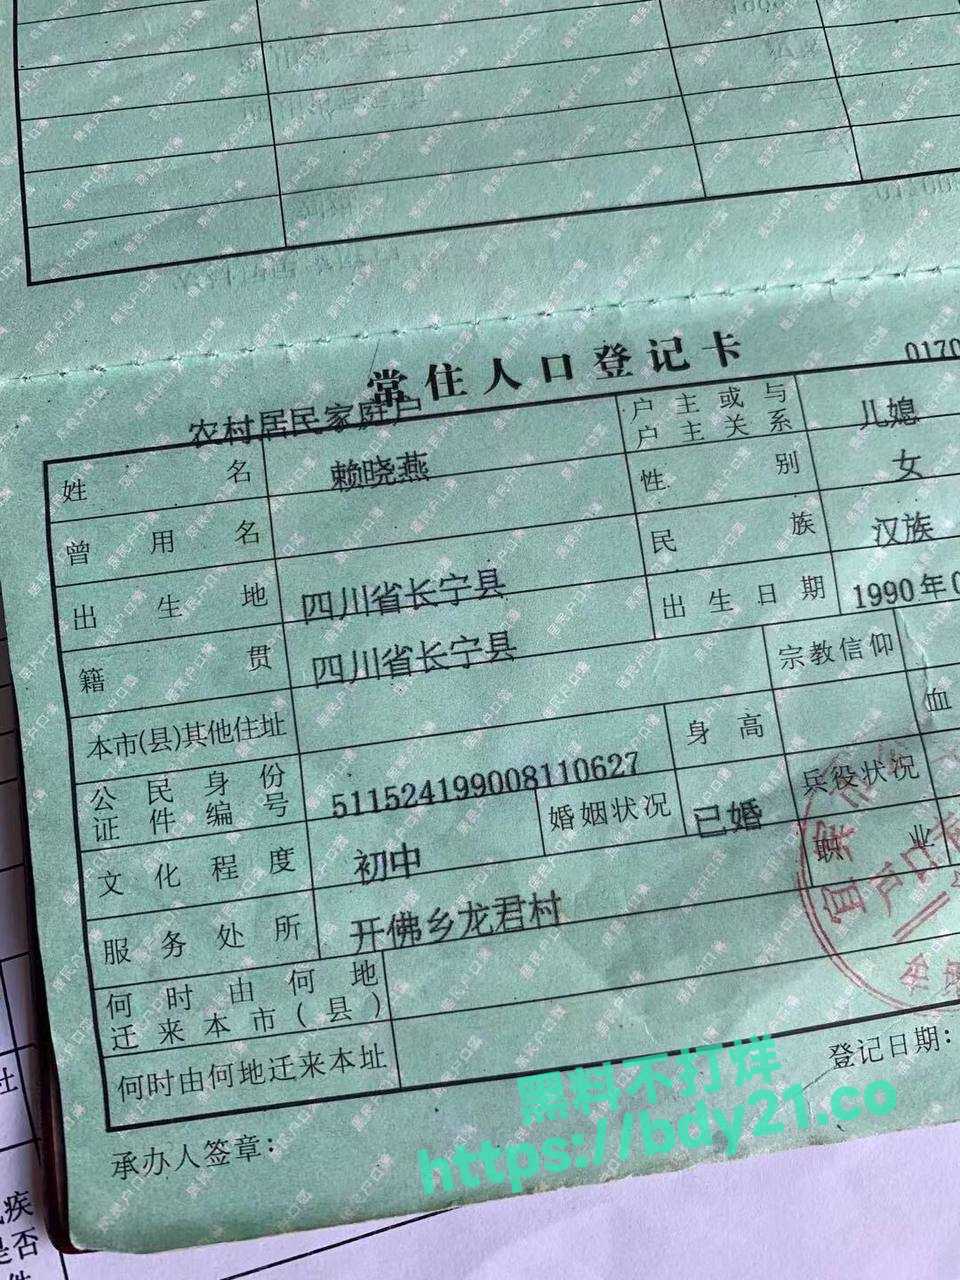 常住人口登记卡
0170
农村居民家庭户
姓名 赖晓燕 户主或与户主关系 儿媳
曾用名 性别 女
出生地 四川省长宁县 民族 汉族
籍贯 四川省长宁县 出生日期 1990年0
本市(县)其他住址 宗教信仰
公民身份证件编号 511524199008110627 身高 血
文化程度 初中 婚姻状况 已婚 兵役状况
服务处所 开佛乡龙君村 职业
何时由何地迁来本市(县)
何时由何地迁来本址
承办人签章: 登记日期:
黑料不打烊
https://bdy21.co